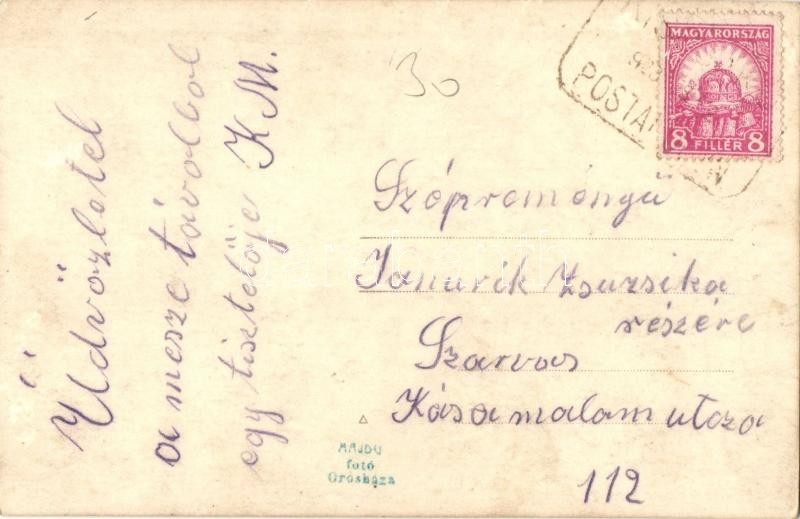 Üdvözletel
a mesze távolbol
egy tisztelöje K M.
30
MAGYARORSZÁG
8 FILLÉR 8
POSTA
Szépreményü
Janurik Zsuzsika
részére
Szarvas
Kásamalam utcza
112
HAJDU
fotó
Orosháza